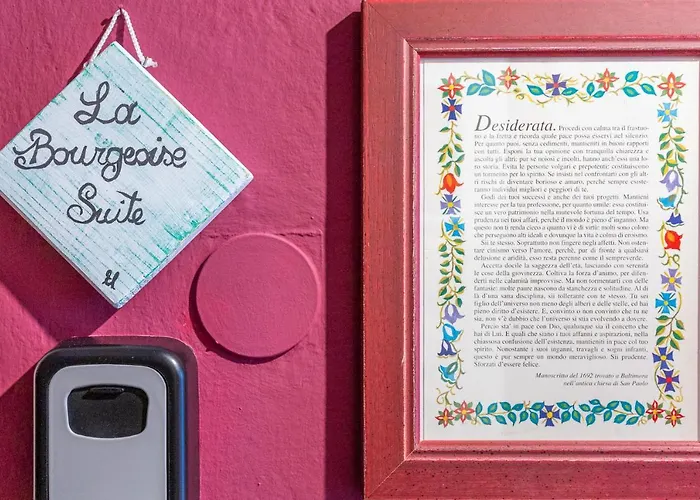 La
Bourgeoise
Suite
Desiderata. Procedi con calma tra il frastuo-
no e la fretta e ricorda quale pace possa esservi nel silenzio.
Per quanto puoi, senza cedimenti, mantieniti in buoni rapporti
con tutti. Esponi la tua opinione con tranquilla chiarezza e
ascolta gli altri: pur se noiosi e incolti, hanno anch'essi una loro
storia. Evita le persone volgari e prepotenti: costituiscono
un tormento per lo spirito. Se insisti nel confrontarti con gli al-
tri rischi di diventare borioso e amaro, perché sempre esiste-
ranno individui migliori e peggiori di te.
Godi dei tuoi successi e anche dei tuoi progetti. Mantieni
interesse per la tua professione, per quanto umile: essa costitui-
sce un vero patrimonio nella mutevole fortuna del tempo. Usa
prudenza nei tuoi affari, perché il mondo è pieno d'inganno. Ma
questo non ti renda cieco a quanto vi è di virtù: molti sono coloro
che perseguono alti ideali e dovunque la vita è colma di eroismo.
Sii te stesso. Soprattutto non fingere negli affetti. Non osten-
tare cinismo verso l'amore, perché, pur di fronte a qualsiasi
delusione e aridità, esso resta perenne come il sempreverde.
Accetta docile la saggezza dell'età, lasciando con serenità
le cose della giovinezza. Coltiva la forza d'animo, per difen-
derti nelle calamità improvvise. Ma non tormentarti con delle
fantasie: molte paure nascono da stanchezza e solitudine. Al di
là d'una sana disciplina, sii tollerante con te stesso. Tu sei
figlio dell'universo non meno degli alberi e delle stelle, ed hai
pieno diritto d'esistere. E, convinto o non convinto che tu ne
sia, non v'è dubbio che l'universo si stia evolvendo a dovere.
Perciò sta' in pace con Dio, qualunque sia il concetto che
hai di Lui. E quali che siano i tuoi affanni e aspirazioni, nella
chiassosa confusione dell'esistenza, mantieniti in pace col tuo
spirito. Nonostante i suoi inganni, travagli e sogni infranti,
questo è pur sempre un mondo meraviglioso. Sii prudente.
Sforzati d'essere felice.
Manoscritto del 1692 trovato a Baltimora
nell'antica chiesa di San Paolo